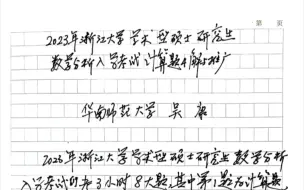 第 页
2023年浙江大学学术型硕士研究生
数学分析入学考试计算题4解与推广
华南师范大学 吴
2023年浙江大学学术型硕士研究生数学分析
入学考试时和3小时8大题,其中第1题为计算题